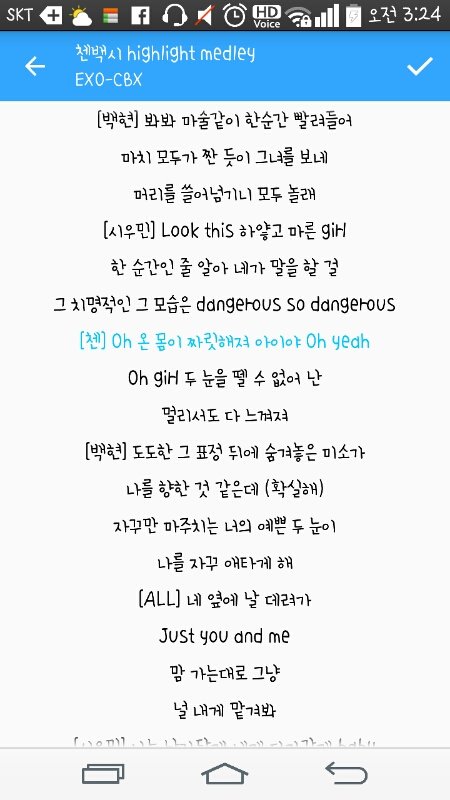 SKT HD Voice 오전 3:24
첸백시 highlight medley
EXO-CBX
[백현] 봐봐 마술같이 한순간 빨려들어
마치 모두가 짠 듯이 그녀를 보네
머리를 쓸어넘기니 모두 놀래
[시우민] Look this 하얗고 마른 girl
한 순간인 줄 알아 네가 말을 할 걸
그 치명적인 그 모습은 dangerous so dangerous
[첸] Oh 온 몸이 짜릿해져 아이야 Oh yeah
Oh girl 두 눈을 뗄 수 없어 난
멀리서도 다 느껴져
[백현] 도도한 그 표정 뒤에 숨겨놓은 미소가
나를 향한 것 같은데 (확실해)
자꾸만 마주치는 너의 예쁜 두 눈이
나를 자꾸 애타게 해
[ALL] 네 옆에 날 데려가
Just you and me
맘 가는대로 그냥
널 내게 맡겨봐